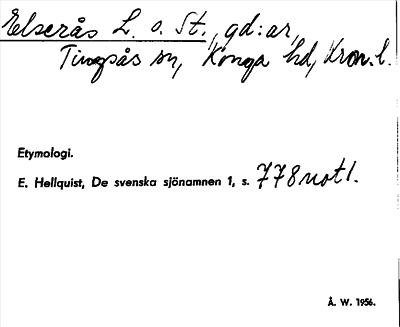 Elserås L. o. St., gd:ar,
Tingsås sn, Konga hd, Kron. l.
Etymologi.
E. Hellquist, De svenska sjönamnen 1, s. 778 not 1.
Å. W. 1956.